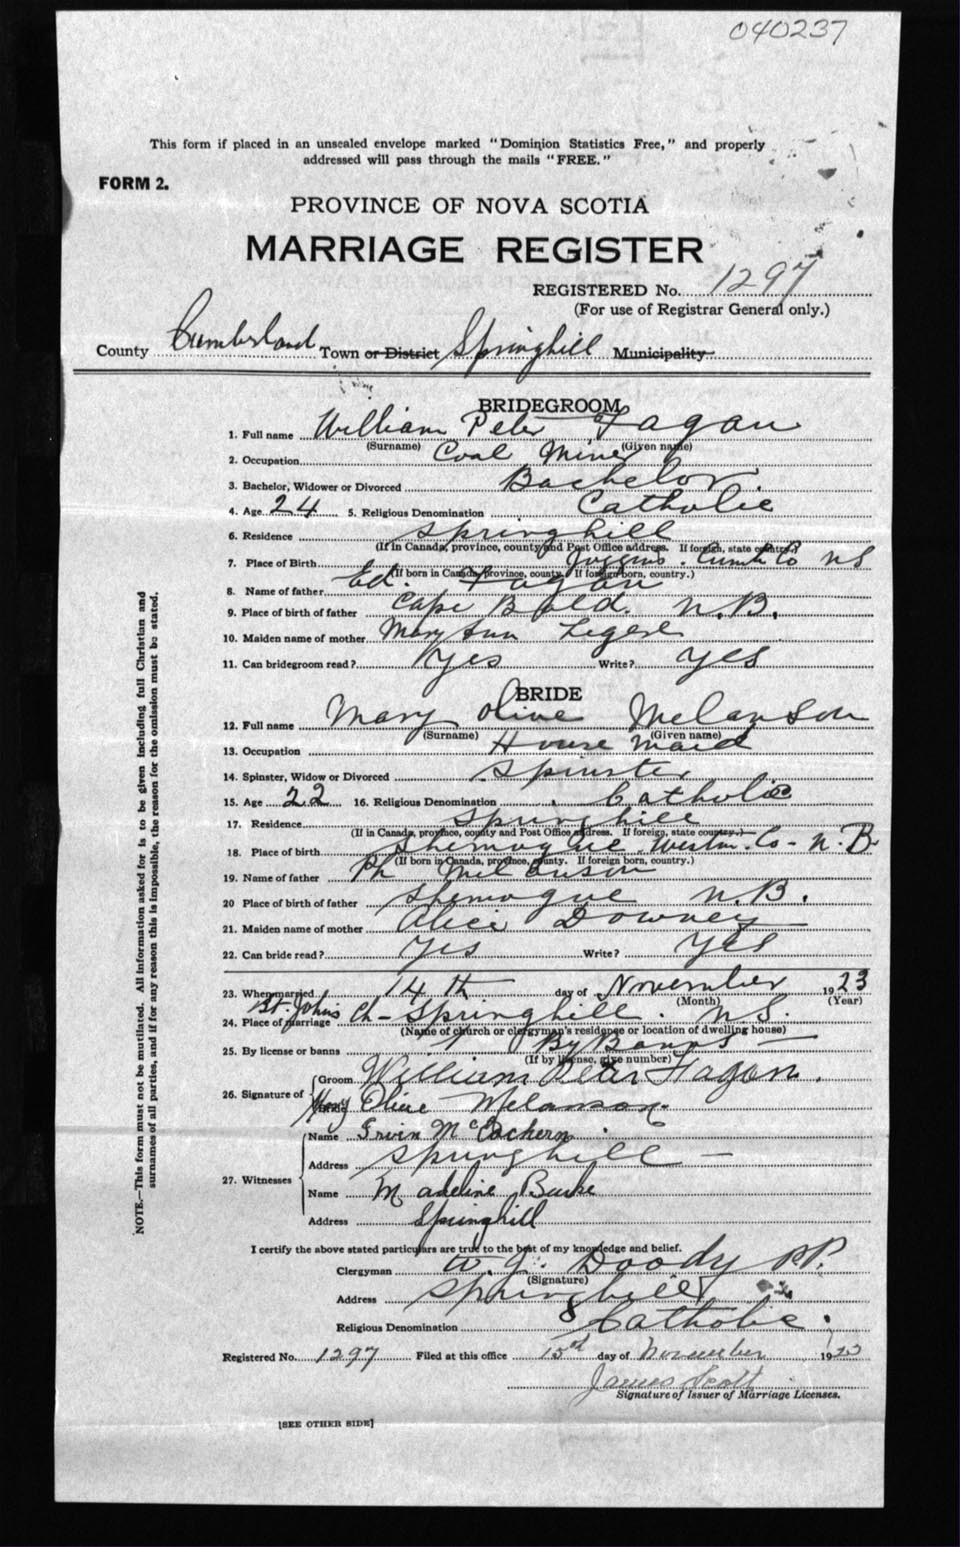 040237
This form if placed in an unsealed envelope marked "Dominion Statistics Free," and properly
addressed will pass through the mails "FREE."
FORM 2.
PROVINCE OF NOVA SCOTIA
MARRIAGE REGISTER
REGISTERED No. 1297
(For use of Registrar General only.)
County Cumberland Town or District Springhill Municipality
BRIDEGROOM
1. Full name William Peter Fagan
(Surname) (Given name)
2. Occupation Coal Miner
3. Bachelor, Widower or Divorced Bachelor
4. Age 24 5. Religious Denomination Catholic
6. Residence Springhill
(If in Canada, province, county and Post Office address. If foreign, state country.)
7. Place of Birth Joggins. Cumb Co NS
(If born in Canada, province, county. If foreign born, country.)
8. Name of father Ed. Fagan
9. Place of birth of father Cape Bald. N.B.
10. Maiden name of mother Mary Ann Legere
11. Can bridegroom read? Yes Write? Yes
BRIDE
12. Full name Mary Olive Melanson
(Surname) (Given name)
13. Occupation House Maid
14. Spinster, Widow or Divorced Spinster
15. Age 22 16. Religious Denomination Catholic
17. Residence Springhill
(If in Canada, province, county and Post Office address. If foreign, state country.)
18. Place of birth Shemogue Westm. Co - N.B.
(If born in Canada, province, county. If foreign born, country.)
19. Name of father Ph Melanson
20 Place of birth of father Shemogue N.B.
21. Maiden name of mother Alice Downey
22. Can bride read? Yes Write? Yes
23. When married 14th day of November 1923
(Month) (Year)
24. Place of marriage St. Johns Ch - Springhill. N.S.
(Name of church or clergyman's residence or location of dwelling house)
25. By license or banns By Banns
(If by license, give number)
26. Signature of Groom William Peter Fagan.
Mary Olive Melanson.
27. Witnesses Name Irvin McEachern
Address Springhill
Name Madeline Burke
Address Springhill
I certify the above stated particulars are true to the best of my knowledge and belief.
Clergyman W. J. Doody P.P.
(Signature)
Address Springhill
Religious Denomination Catholic.
Registered No. 1297 Filed at this office 15 day of November 1923
James Scott
Signature of Issuer of Marriage Licenses.
[SEE OTHER SIDE]
NOTE.—This form must not be mutilated. All information asked for is to be given including full Christian and
surnames of all parties, and if for any reason this is impossible, the reason for the omission must be stated.